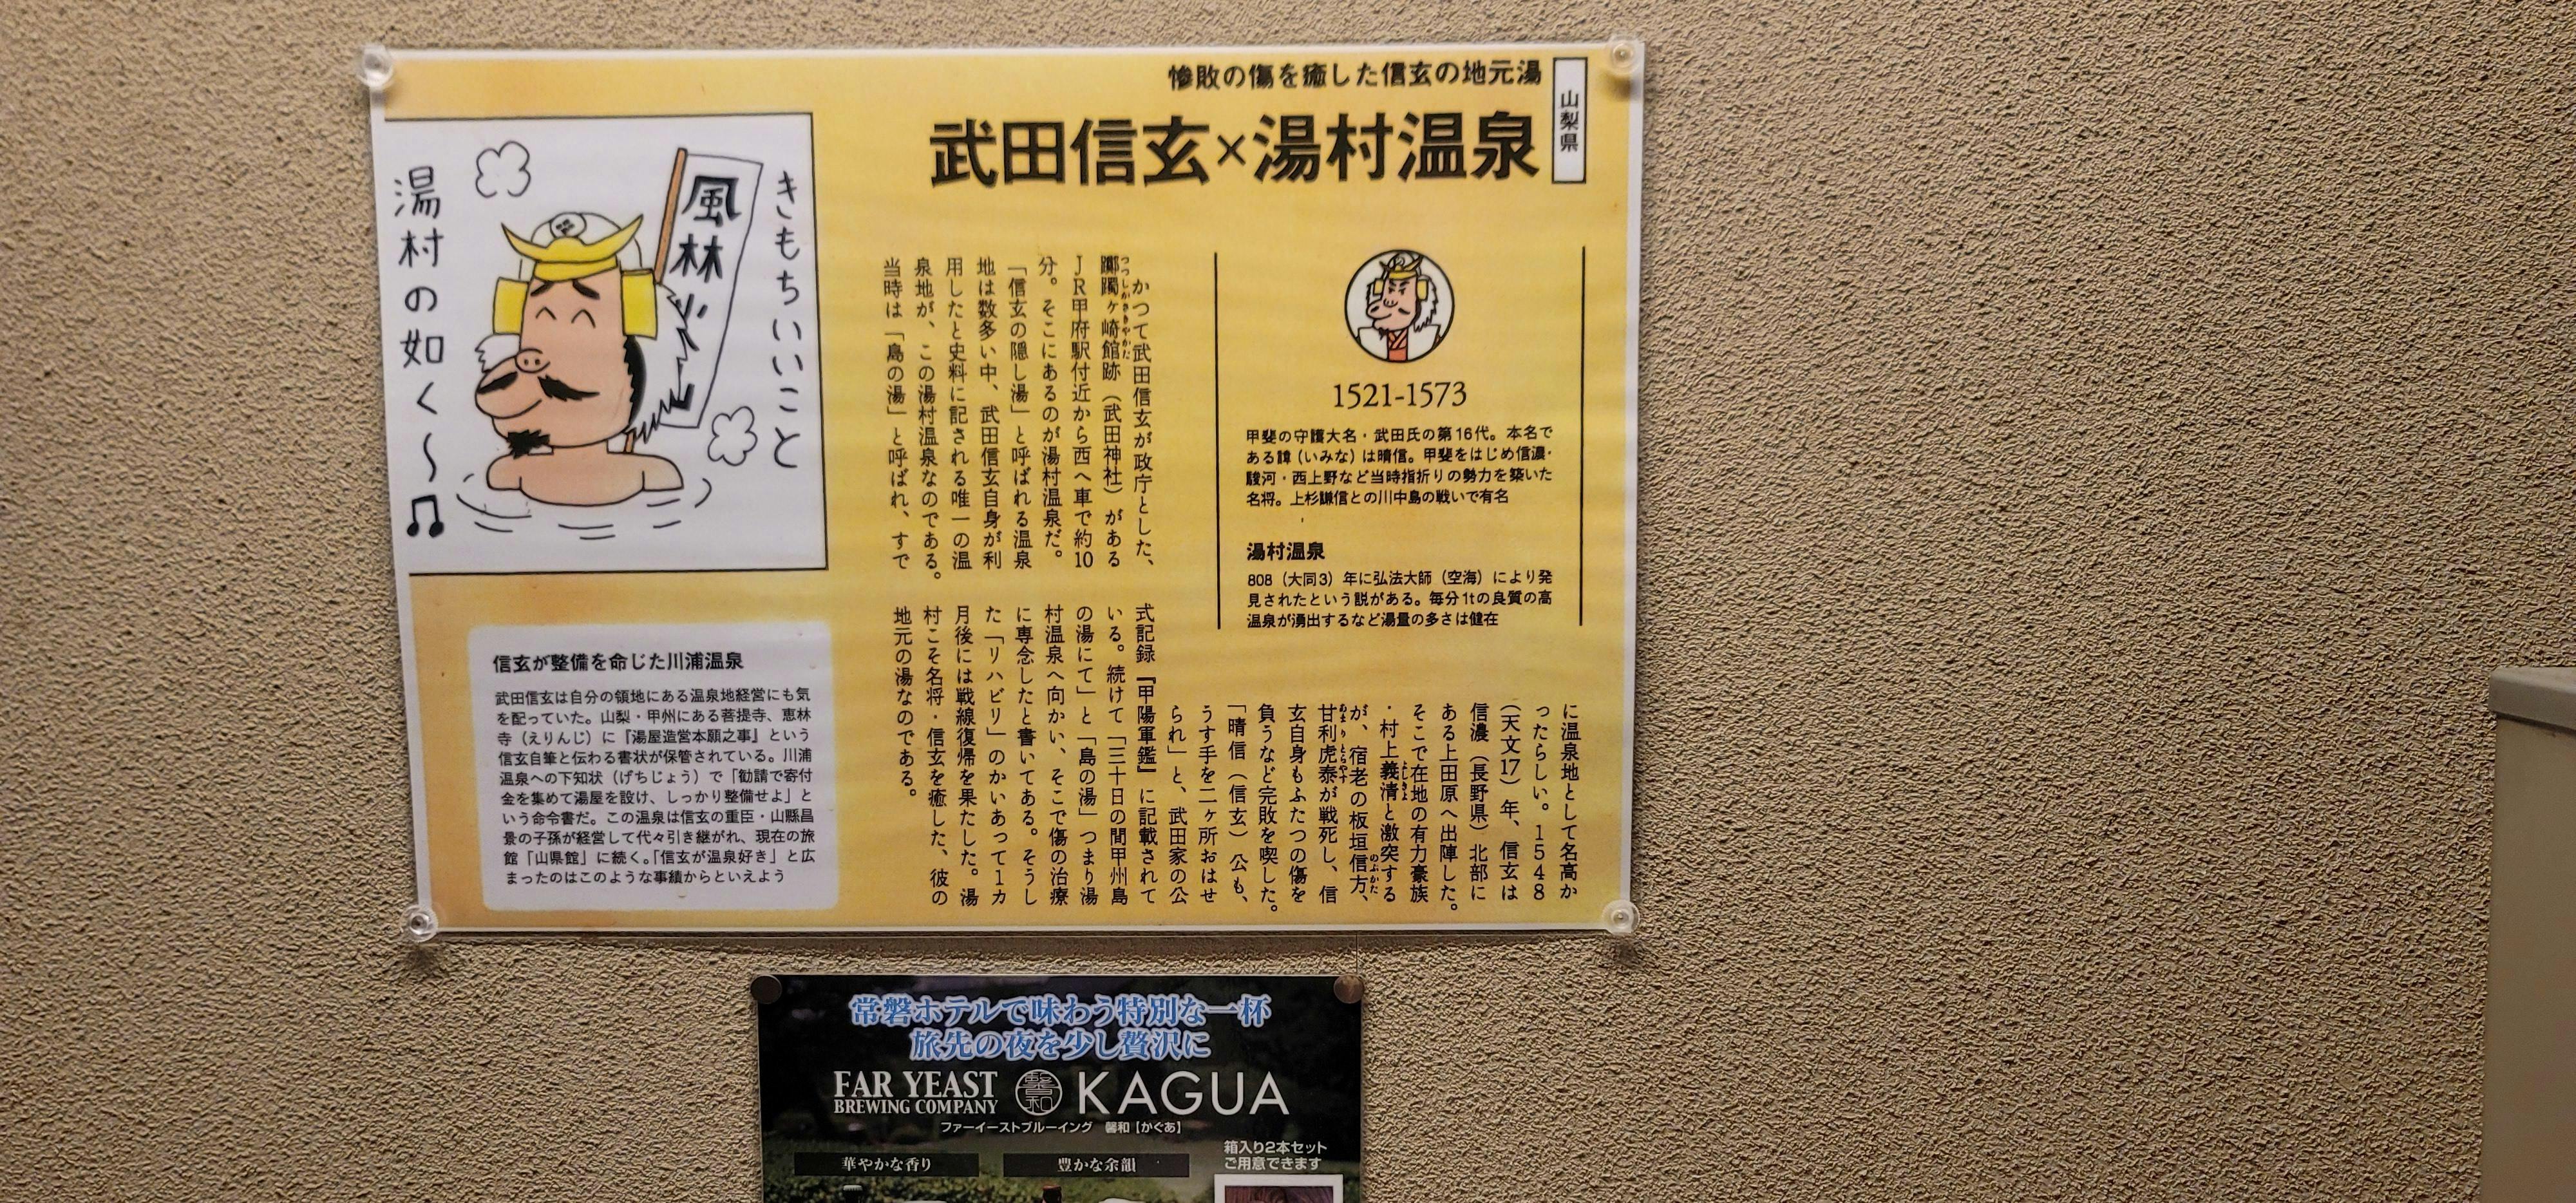 山梨県
惨敗の傷を癒した信玄の地元湯
武田信玄×湯村温泉
1521-1573
甲斐の守護大名・武田氏の第16代。本名で
ある諱（いみな）は晴信。甲斐をはじめ信濃・
駿河・西上野など当時指折りの勢力を築いた
名将。上杉謙信との川中島の戦いで有名
湯村温泉
808（大同3）年に弘法大師（空海）により発
見されたという説がある。毎分1tの良質の高
温泉が湧出するなど湯量の多さは健在
かつて武田信玄が政庁とした、
躑躅ヶ崎館跡（武田神社）がある
つつじがさきやかた
JR甲府駅付近から西へ車で約10
分。そこにあるのが湯村温泉だ。
「信玄の隠し湯」と呼ばれる温泉
地は数多い中、武田信玄自身が利
用したと史料に記される唯一の温
泉地が、この湯村温泉なのである。
当時は「島の湯」と呼ばれ、すで
に温泉地として名高か
ったらしい。1548
（天文17）年、信玄は
信濃（長野県）北部に
ある上田原へ出陣した。
そこで在地の有力豪族
・村上義清と激突する
よしきよ
が、宿老の板垣信方、
のぶかた
甘利虎泰が戦死し、信
あまりとらやす
玄自身もふたつの傷を
負うなど完敗を喫した。
「晴信（信玄）公も、
うす手を二ヶ所おはせ
られ」と、武田家の公
式記録『甲陽軍鑑』に記載されて
いる。続けて「三十日の間甲州島
の湯にて」と「島の湯」つまり湯
村温泉へ向かい、そこで傷の治療
に専念したと書いてある。そうし
た「リハビリ」のかいあって1カ
月後には戦線復帰を果たした。湯
村こそ名将・信玄を癒した、彼の
地元の湯なのである。
きもちいいこと
風林火山
湯村の如く〜♫
信玄が整備を命じた川浦温泉
武田信玄は自分の領地にある温泉地経営にも気
を配っていた。山梨・甲州にある菩提寺、恵林
寺（えりんじ）に『湯屋造営本願之事』という
信玄自筆と伝わる書状が保管されている。川浦
温泉への下知状（げちじょう）で「勧請で寄付
金を集めて湯屋を設け、しっかり整備せよ」と
いう命令書だ。この温泉は信玄の重臣・山縣昌
景の子孫が経営して代々引き継がれ、現在の旅
館「山県館」に続く。「信玄が温泉好き」と広
まったのはこのような事績からといえよう
常磐ホテルで味わう特別な一杯
旅先の夜を少し贅沢に
FAR YEAST
BREWING COMPANY
馨和
KAGUA
ファーイーストブルーイング 馨和【かぐあ】
華やかな香り
豊かな余韻
箱入り2本セット
ご用意できます